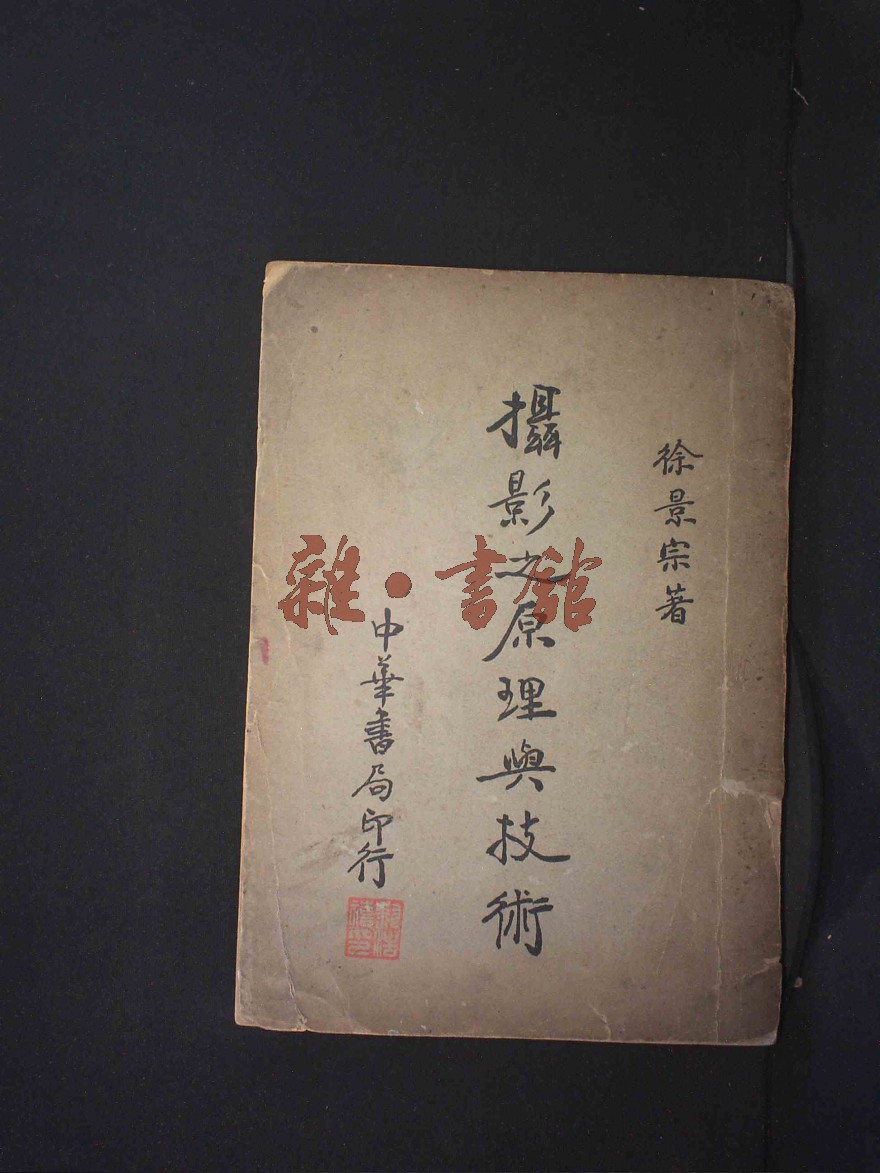 徐景宗著
攝影之原理與技術
中華書局印行
雜·書館